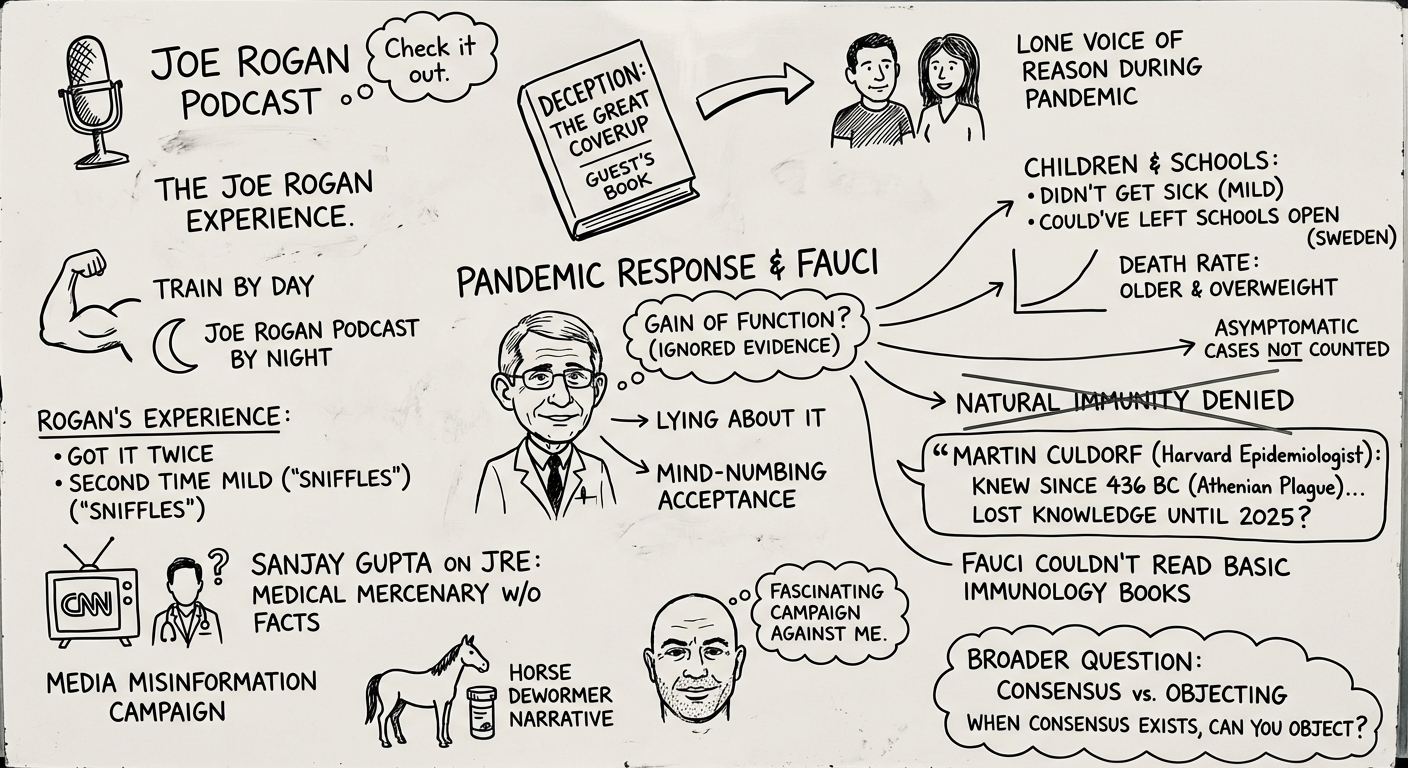 JOE ROGAN
PODCAST
Check it
out.
THE JOE ROGAN
EXPERIENCE.
TRAIN BY DAY
JOE ROGAN PODCAST
BY NIGHT
ROGAN'S EXPERIENCE:
• GOT IT TWICE
• SECOND TIME MILD ("SNIFFLES")
("SNIFFLES")
CNN
?
SANJAY GUPTA ON JRE:
MEDICAL MERCENARY W/O
FACTS
MEDIA MISINFORMATION
CAMPAIGN
HORSE
DEWORMER
NARRATIVE
DECEPTION:
THE GREAT
COVERUP
GUEST'S
BOOK
PANDEMIC RESPONSE & FAUCI
GAIN OF FUNCTION?
(IGNORED EVIDENCE)
LYING ABOUT IT
MIND-NUMBING
ACCEPTANCE
FASCINATING
CAMPAIGN
AGAINST ME.
LONE VOICE OF
REASON DURING
PANDEMIC
CHILDREN & SCHOOLS:
• DIDN'T GET SICK (MILD)
• COULD'VE LEFT SCHOOLS OPEN
(SWEDEN)
DEATH RATE:
OLDER & OVERWEIGHT
ASYMPTOMATIC
CASES NOT COUNTED
NATURAL IMMUNITY DENIED
"MARTIN CULDORF (Harvard Epidemiologist):
KNEW SINCE 436 BC (Athenian Plague)...
LOST KNOWLEDGE UNTIL 2025?
FAUCI COULDN'T READ BASIC
IMMUNOLOGY BOOKS
BROADER QUESTION:
CONSENSUS vs. OBJECTING
WHEN CONSENSUS EXISTS, CAN YOU OBJECT?